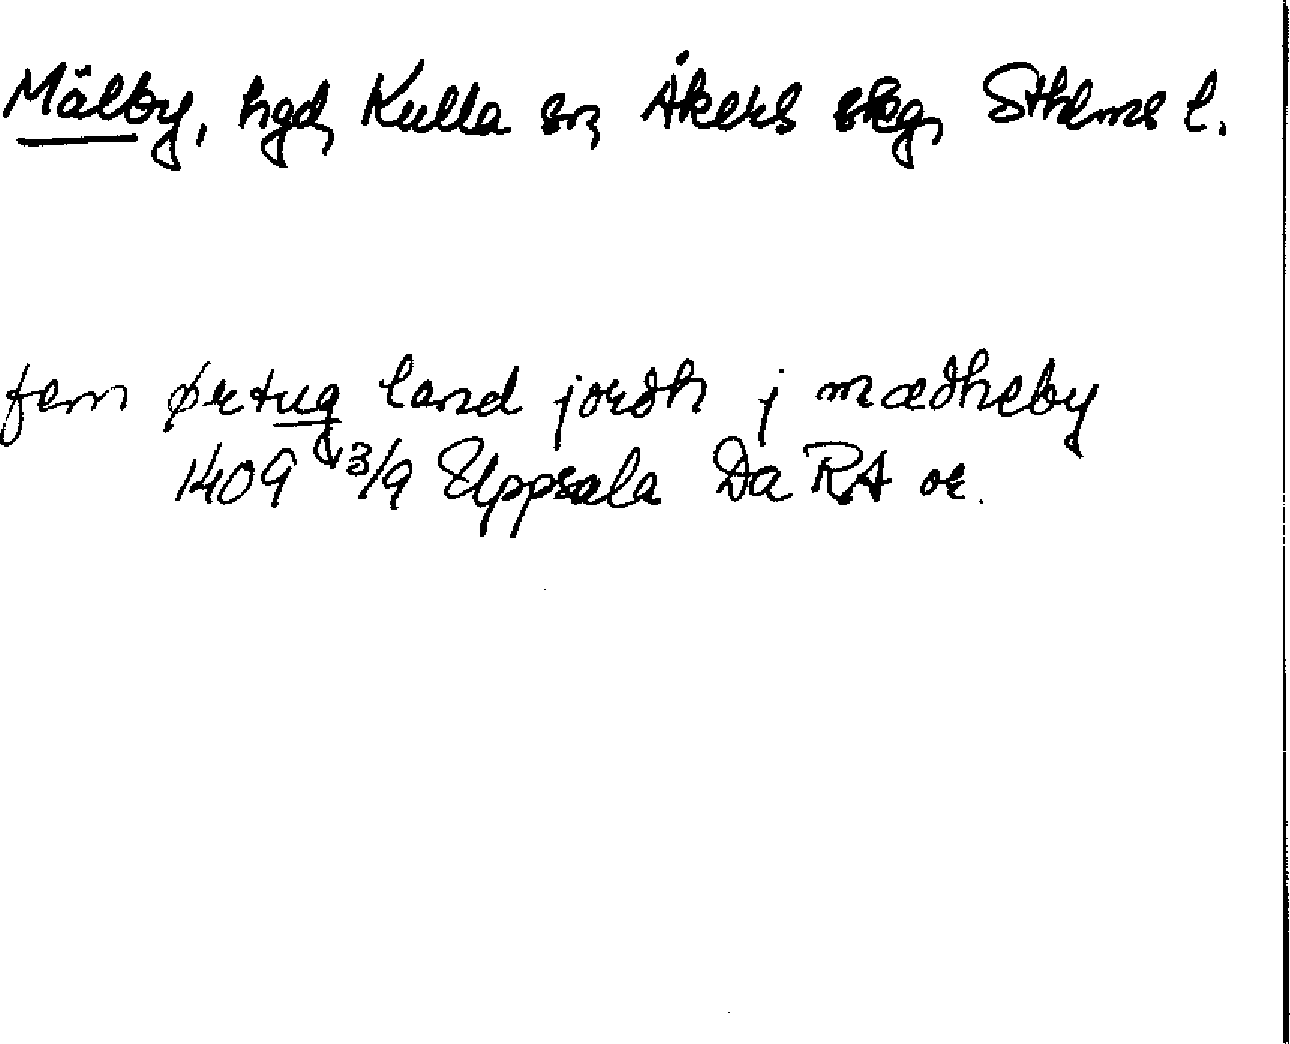 Mälby, hgd, Kulla sn, Åkers skg, Sthlms l.
fem ørtug land jordh j mædheby
1409 3/9 Uppsala Da RA or.